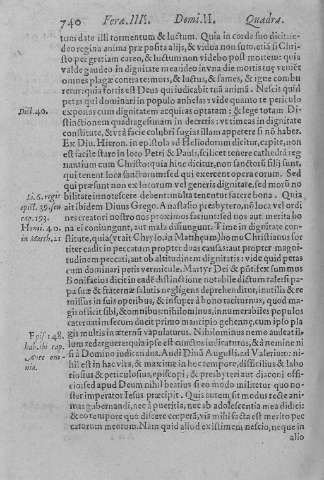 740 Feræ IIII. Domi. II. Quadra.
tum date illi tormentum & luctum. Quia in corde suo dicit: sedeo
regina
deo regina anima præ posita alijs, & vidua non sum, etiã si Chri-
sto per gratiam careo, & luctum non videbo post mortem: quia
valde gaudeo in dignitate mea: ideo in vna die mortis tuę venient
omnes plagæ contra te: mors, & luctus, & fames, & igne combu
retur: quia fortis est Deus qui iudicabit tuã animã. Nescis quid
petas qui dominari in populo anhelas: vide quanto te periculo
Dist. 40. exponas cum dignitate acquiras optatam: & lege totam. Di-
stinctionem quadragesimam in decretis: vt timeas in dignitate
constitute, & vtrâ facie colubri fugias illam appetere si nõ habes.
Ex Diu. Hieron. in epistola ad Heliodorum dicitur, capite, non
est facile stare in loco Petri & Pauli, scilicet tenere cathedrã reg-
nantium cum Christo: quia hinc dicitur, non sanctorũ filij sunt,
qui tenent loca sanctorum: sed qui exercent opera eorum. Sed
qui præsunt non ex locorum vel generis dignitate, sed morũ no
Li. 5. regis bilitate innotescere debent: multa tenentur facere bona. Quia
epist. 59. seu ait ibidem Diuus Grego. Anastasio presbytero, nõ loca vel ordi
cap. 193. nes creatori nostro nos proximos faciunt: sed nos aut merita bo
Homi. 40. na ei coniungunt, aut mala disiungunt. Time in dignitate con-
in Matth. 21 stitute, quia (vt ait Chryso. in Matthæum) homo Christianus for
titer cadit in peccatum propter duas causas: aut propter magni-
tudinem peccati, aut ob altitudinem dignitatis: vide quid petas
cum dominari petis vermicule. Martyr Dei & põtifex summus
Bonifacius dicit in eadẽ distinctione notabile dictum tale: si pa-
pa suæ & fraternæ salutis negligens deprehenditur, inutilis & re
missus in suis operibus, & insuper à bono taciturnus, quod ma-
gis officit sibi, & omnibus: nihilominus, innumerabiles populos
cateruatim secum ducit primo mancipio gehennę, cum ipso pla
Epist. 148. gis multis in æternũ vapulaturus. Nihilominus nemo audeat il-
hab. in cap. lum redarguere: quia ipse est cunctos iudicaturus, & à nemine ni
Ante om- si à Domino iudicandus. Audi Diuũ August. ad Valerium: ni-
nia. hil est in hac vita, & maxime in hoc tempore, difficilius & labo
riosius & periculosius, episcopi, & presbyteri aut diaconi offi-
cio: sed apud Deum nihil beatius si eo modo militetur quo no-
ster imperator Iesus præcipit. Quis autem sit modus recte ani-
mas gubernandi, nec à pueritia, nec ab adolescentia mea didici:
& eo tempore quo discere cœperã, vis mihi facta est merito pec
catorum meorum. Nam quid aliud existimem nescio, neque in
alio